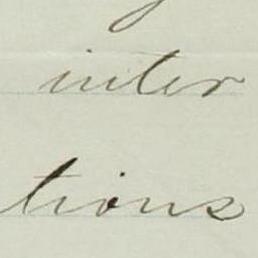 inter
tions